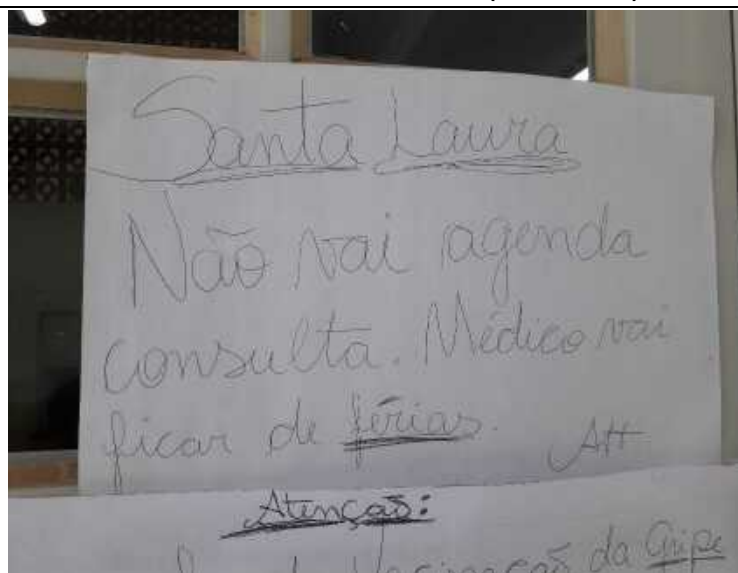 Santa Laura
Não vai agenda
consulta. Médico vai
ficar de férias.
Att
Atenção:
Vacinação da Gripe